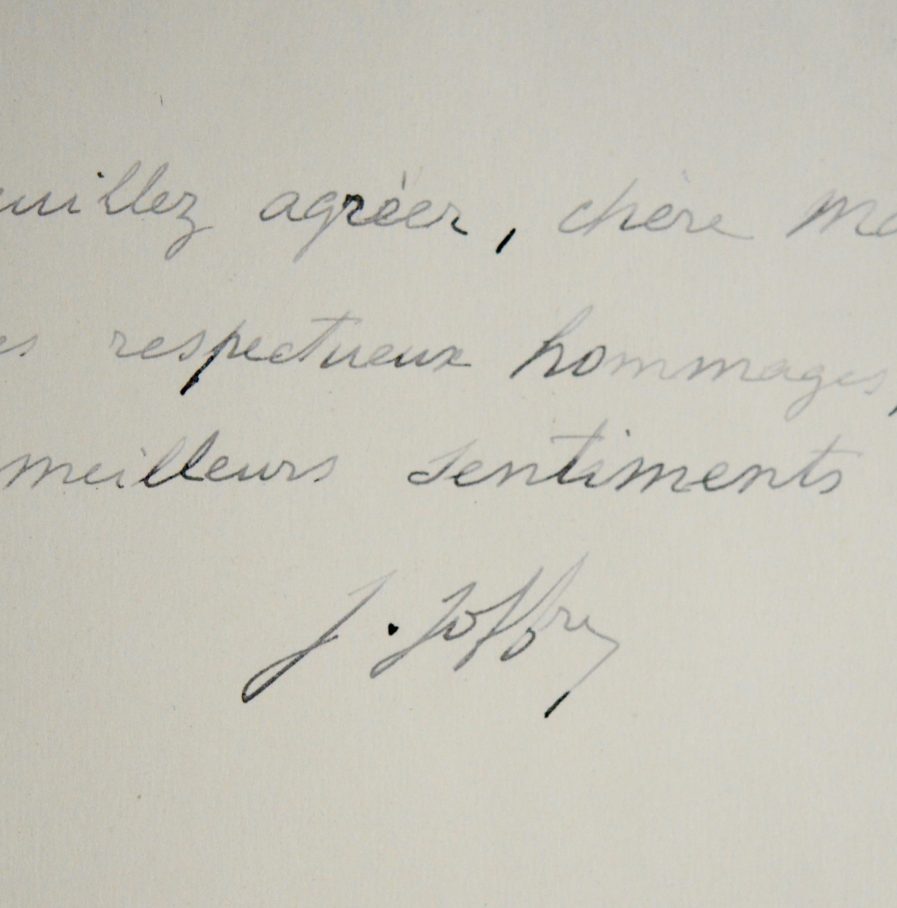 uillez agréer, chère Ma
es respectueux hommages,
meilleurs sentiments
J. Joffre